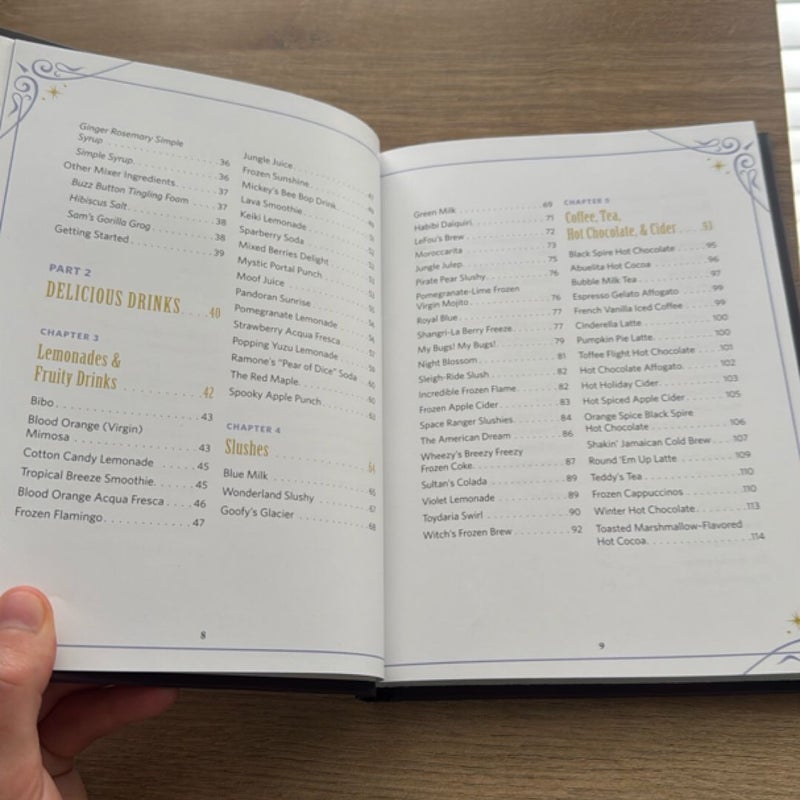 Ginger Rosemary Simple
Syrup . . . . . . . . . . . 36
Simple Syrup . . . . . . . . . . . 36
Other Mixer Ingredients . . . . . . . 37
Buzz Button Tingling Foam . . . . 37
Hibiscus Salt . . . . . . . . . . . 38
Sam's Gorilla Grog . . . . . . . . 38
Getting Started . . . . . . . . . . . 39
PART 2
DELICIOUS DRINKS . . . . 40
CHAPTER 3
Lemonades &
Fruity Drinks . . . . . . . . 42
Bibo . . . . . . . . . . . 43
Blood Orange (Virgin)
Mimosa . . . . . . . . . . . 43
Cotton Candy Lemonade . . . . . 45
Tropical Breeze Smoothie . . . . . 45
Blood Orange Acqua Fresca . . . . 46
Frozen Flamingo . . . . . . . . . . 47
Jungle Juice
Frozen Sunshine
Mickey's Bee Bop Drink
Lava Smoothie
Keiki Lemonade
Sparberry Soda
Mixed Berries Delight
Mystic Portal Punch
Moof Juice
Pandoran Sunrise
Pomegranate Lemonade
Strawberry Acqua Fresca
Popping Yuzu Lemonade
Ramone's "Pear of Dice" Soda
The Red Maple
Spooky Apple Punch
CHAPTER 4
Slushes . . . . . . . . . . . 64
Blue Milk
Wonderland Slushy
Goofy's Glacier . . . . . . . . . . 68
8
Green Milk . . . . . . . . . . . 69
Habibi Daiquiri . . . . . . . . . . 71
LeFou's Brew . . . . . . . . . . . 72
Moroccarita . . . . . . . . . . . 73
Jungle Julep . . . . . . . . . . . 75
Pirate Pear Slushy . . . . . . . . 76
Pomegranate-Lime Frozen
Virgin Mojito . . . . . . . . . . . 76
Royal Blue . . . . . . . . . . . 77
Shangri-La Berry Freeze . . . . . . 77
My Bugs! My Bugs! . . . . . . . . 79
Night Blossom . . . . . . . . . . 81
Sleigh-Ride Slush . . . . . . . . . 82
Incredible Frozen Flame . . . . . . 82
Frozen Apple Cider . . . . . . . . 83
Space Ranger Slushies . . . . . . . 84
The American Dream . . . . . . . 86
Wheezy's Breezy Freezy
Frozen Coke . . . . . . . . . . . 87
Sultan's Colada . . . . . . . . . . 89
Violet Lemonade . . . . . . . . . 89
Toydaria Swirl . . . . . . . . . . 90
Witch's Frozen Brew . . . . . . . . 92
CHAPTER 5
Coffee, Tea,
Hot Chocolate, & Cider . . . . . 93
Black Spire Hot Chocolate . . . . . 95
Abuelita Hot Cocoa . . . . . . . . 96
Bubble Milk Tea . . . . . . . . . . 97
Espresso Gelato Affogato . . . . . 99
French Vanilla Iced Coffee . . . . . 99
Cinderella Latte . . . . . . . . . . 100
Pumpkin Pie Latte . . . . . . . . . 100
Toffee Flight Hot Chocolate . . . . 101
Hot Chocolate Affogato . . . . . . 102
Hot Holiday Cider . . . . . . . . . 103
Hot Spiced Apple Cider . . . . . . 105
Orange Spice Black Spire
Hot Chocolate . . . . . . . . . . 106
Shakin' Jamaican Cold Brew . . . . 107
Round 'Em Up Latte . . . . . . . . 109
Teddy's Tea . . . . . . . . . . . 110
Frozen Cappuccinos . . . . . . . . 110
Winter Hot Chocolate . . . . . . . 113
Toasted Marshmallow-Flavored
Hot Cocoa . . . . . . . . . . . 114
9